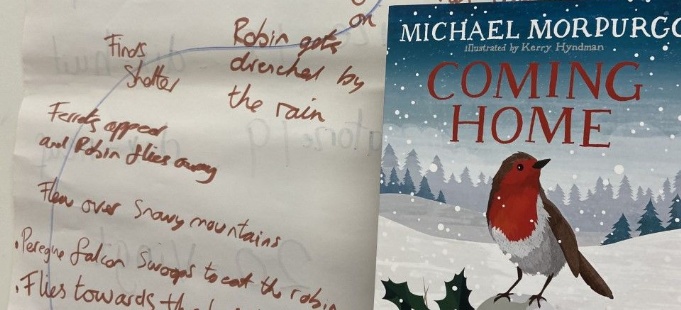 on
Robin gets
drenched by
the rain
Finds
Shelter
Ferrets appear
and Robin flies away
Flew over Snowy mountains
.Peregine falcon Swoops to eat the robin
.Flies towards the
MICHAEL MORPURGO
illustrated by Kerry Hyndman
COMING
HOME